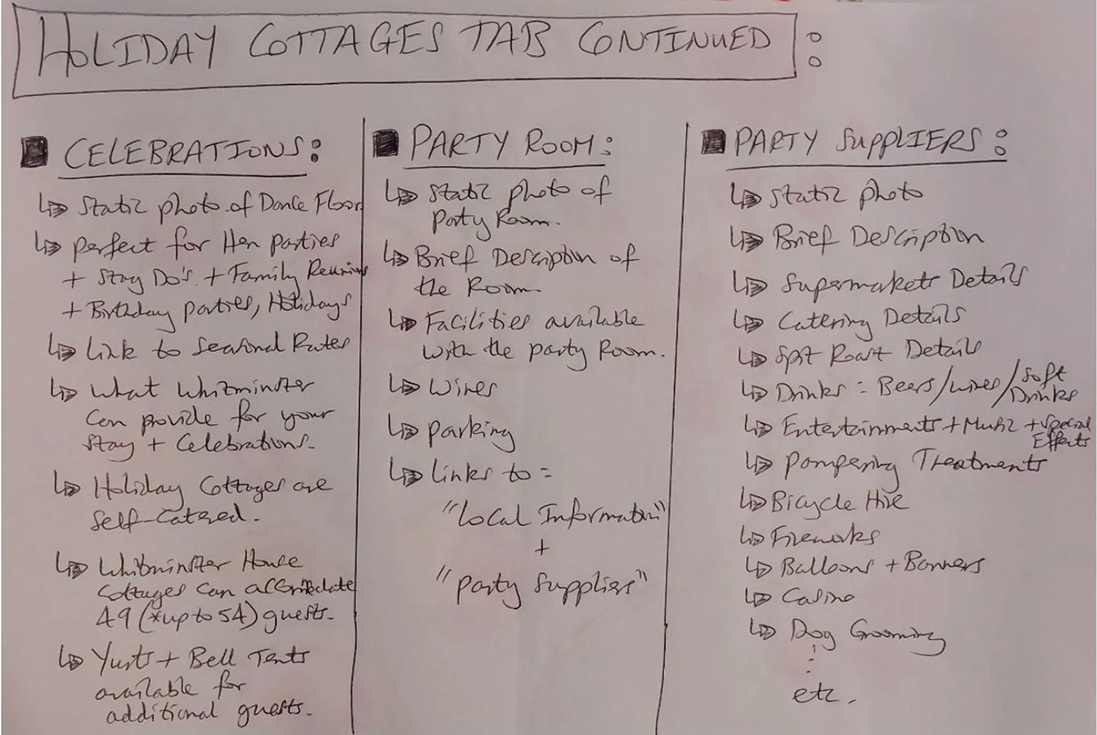 HOLIDAY COTTAGES TAB CONTINUED :
CELEBRATIONS:
Static photo of Dance Floor
perfect for Hen parties
+ Stag Do's. + Family Reunions
+ Birthday parties, Holidays
Link to Seasonal Rates
What Whitminster
Can provide for your
Stay + Celebrations.
Holiday Cottages are
Self-Catered.
Whitminster House
Cottages can
49 (*up to 54) guests.
Yurts + Bell Tents
available for
additional guests.
PARTY ROOM:
Static photo of
Party Room.
Brief Description of
the Room.
Facilities available
with the party Room.
Wines
parking
Links to =
"Local Information"
+
"Party Suppliers"
PARTY SUPPLIERS:
Static photo
Brief Description
Supermarkets Details
Catering Details
Spit Roast Details
Drinks = Beers/wines/Soft
Drinks
Entertainments + Music + Special
Effects
Pampering Treatments
Bicycle Hire
Fireworks
Balloons + Banners
Casino
Dog Grooming
etc.